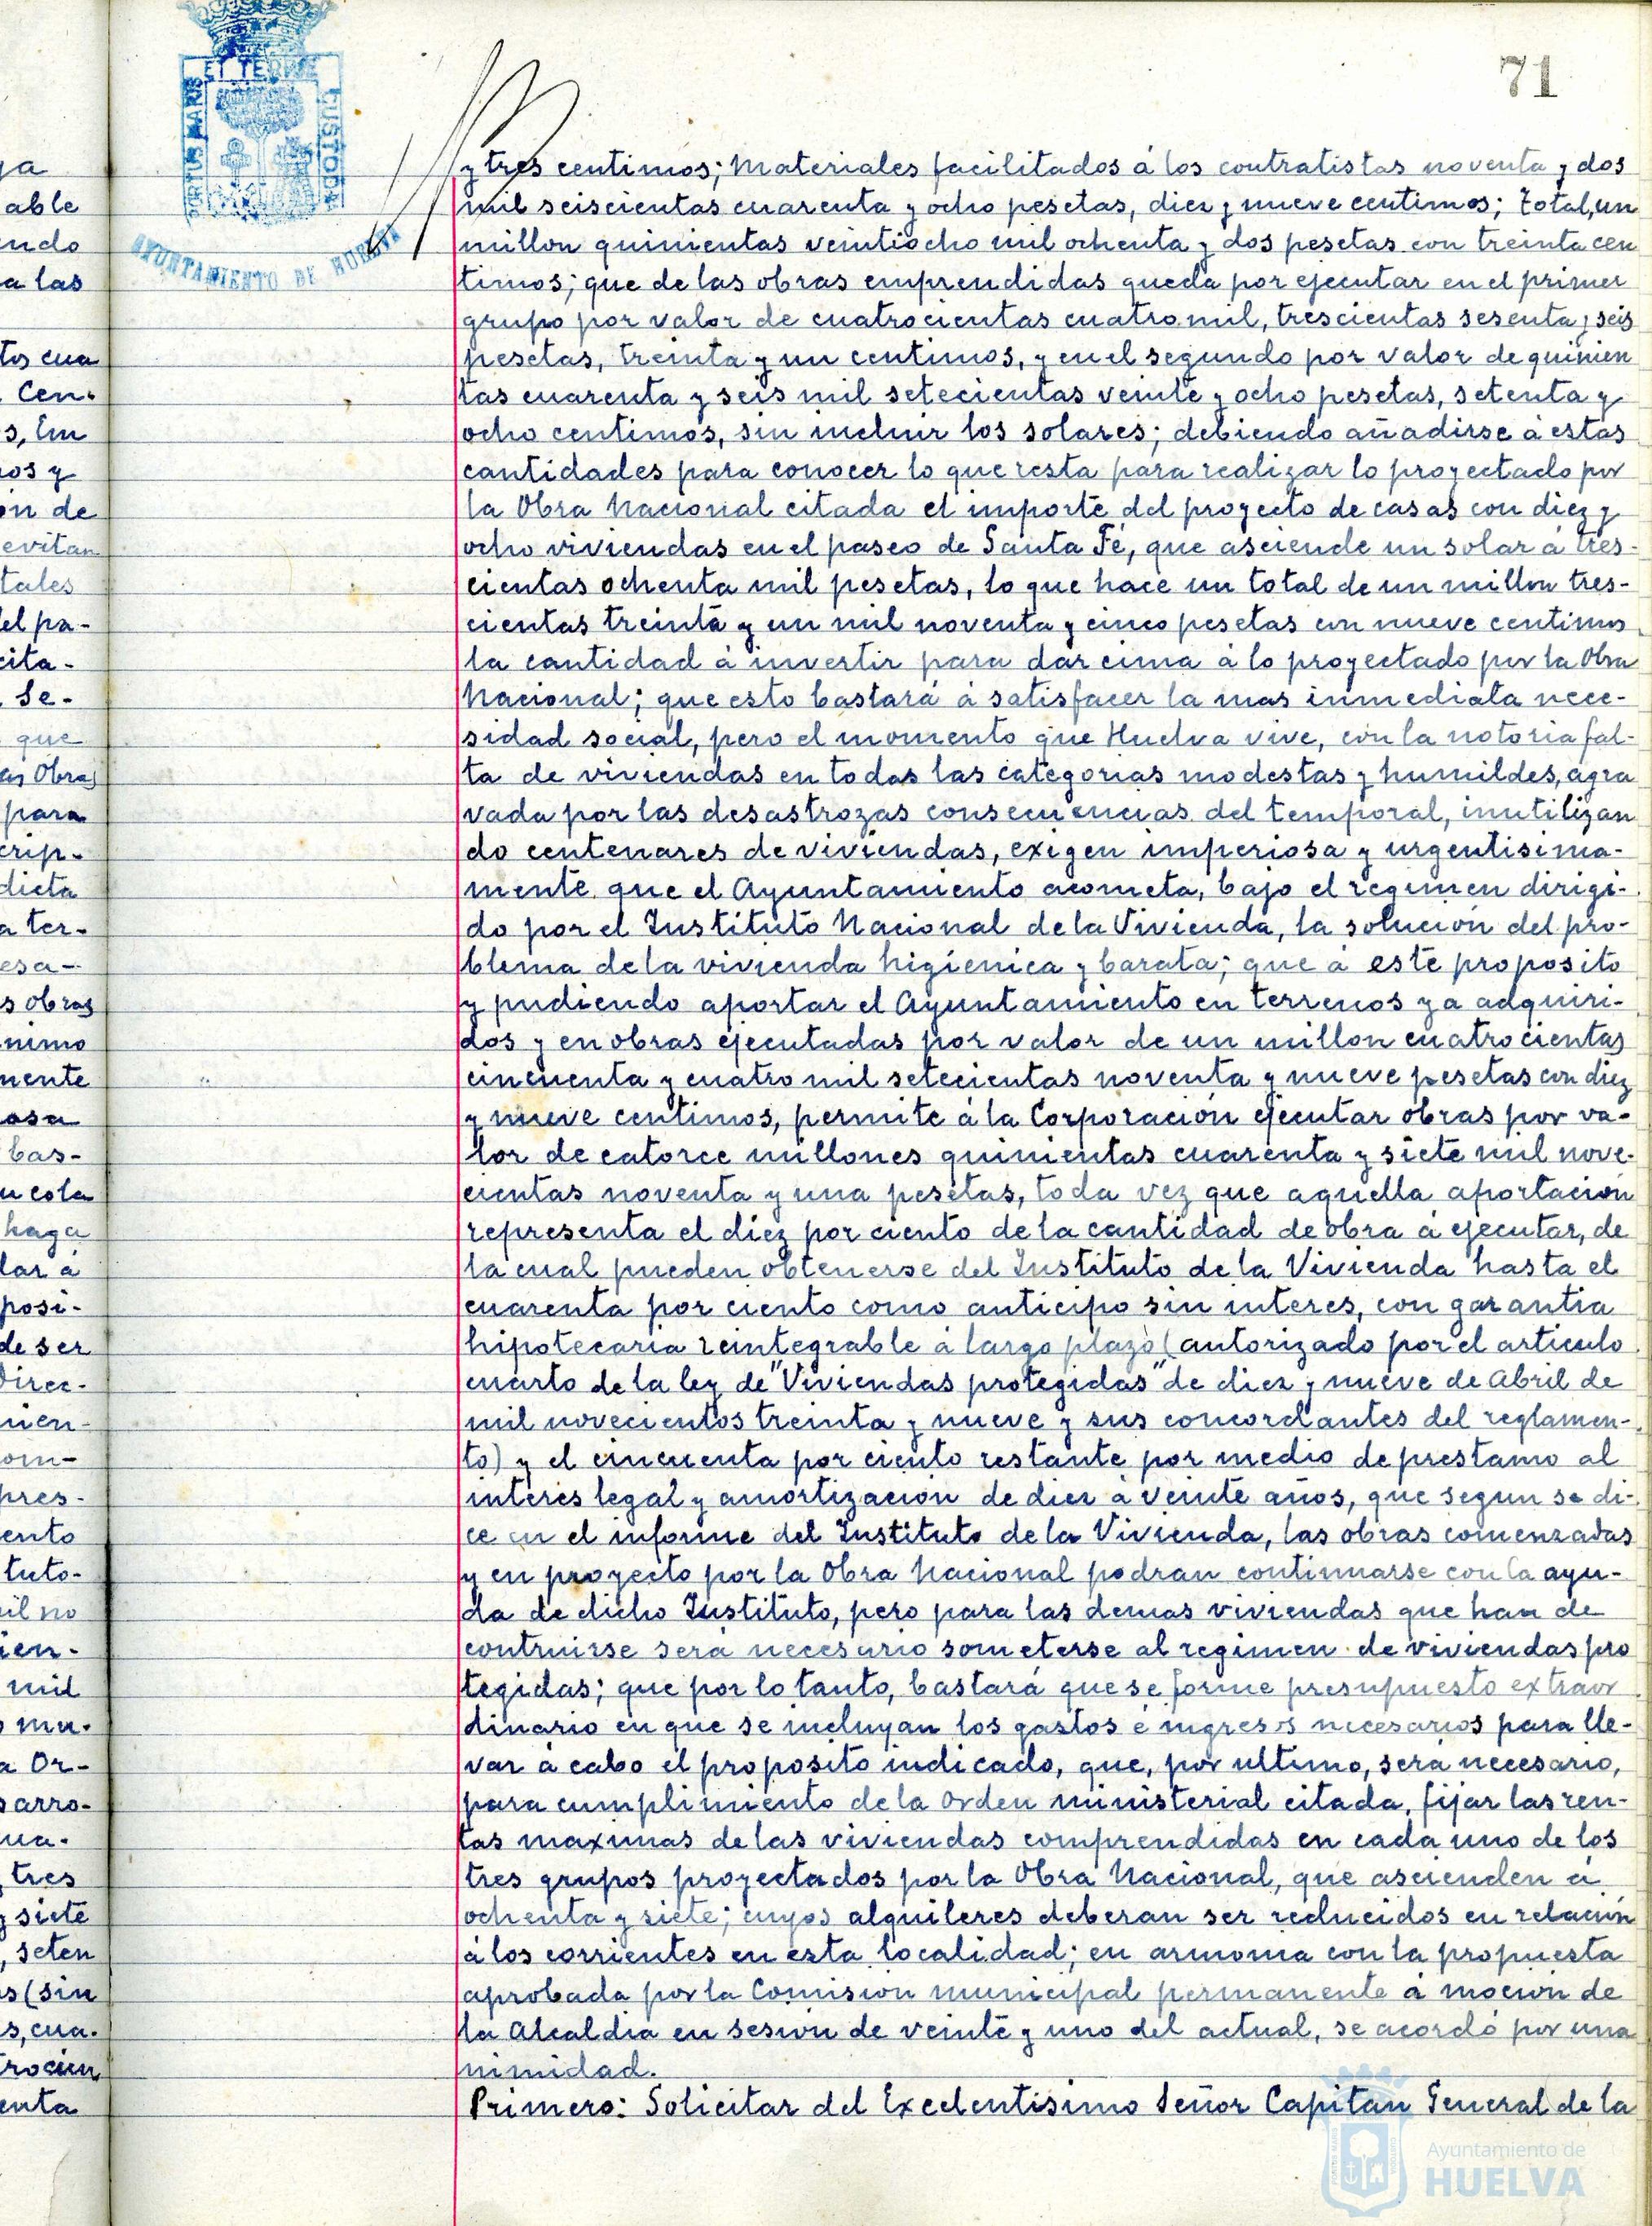 71
ET TERRE
PORTUS MARIS
CUSTODIA
AYUNTAMIENTO DE HUELVA
y tres centimos; Materiales facilitados á los contratistas noventa y dos
mil seiscientas cuarenta y ocho pesetas, diez y nueve centimos; total, un
millon quinientas veintiocho mil ochenta y dos pesetas con treinta cen
timos; que de las obras emprendidas queda por ejecutar en el primer
grupo por valor de cuatrocientas cuatro mil, trescientas sesenta y seis
pesetas, treinta y un centimos, y en el segundo por valor de quinien
tas cuarenta y seis mil setecientas veinte y ocho pesetas, setenta y
ocho centimos, sin incluir los solares; debiendo añadirse á estas
cantidades para conocer lo que resta para realizar lo proyectado por
la Obra Nacional citada el importe del proyecto de casas con diez y
ocho viviendas en el paseo de Santa Fé, que asciende un solar á tres-
cientas ochenta mil pesetas, lo que hace un total de un millon tres-
cientas treinta y un mil noventa y cinco pesetas con nueve centimos
la cantidad á invertir para dar cima á lo proyectado por la Obra
Nacional; que esto bastará á satisfacer la mas inmediata nece-
sidad social, pero el momento que Huelva vive, con la notoria fal-
ta de viviendas en todas las categorias modestas y humildes, agra
vada por las desastrozas consecuencias del temporal, inutilizan
do centenares de viviendas, exigen imperiosa y urgentisima-
mente que el Ayuntamiento acometa, bajo el regimen dirigi-
do por el Instituto Nacional de la Vivienda, la solución del pro-
blema de la vivienda higienica y barata; que á este proposito
y pudiendo aportar el Ayuntamiento en terrenos ya adquiri-
dos y en obras ejecutadas por valor de un millon cuatrocientas
cincuenta y cuatro mil setecientas noventa y nueve pesetas con diez
y nueve centimos, permite á la Corporación ejecutar obras por va-
lor de catorce millones quinientas cuarenta y siete mil nove-
cientas noventa y una pesetas, toda vez que aquella aportacion
representa el diez por ciento de la cantidad de obra á ejecutar, de
la cual pueden obtenerse del Instituto de la Vivienda hasta el
cuarenta por ciento como anticipo sin interes, con garantia
hipotecaria reintegrable á largo plazo (autorizado por el articulo
cuarto de la ley de "Viviendas protegidas" de diez y nueve de Abril de
mil novecientos treinta y nueve y sus concordantes del reglamen-
to) y el cincuenta por ciento restante por medio de prestamo al
interes legal y amortización de diez á veinte años, que segun se di-
ce en el informe del Instituto de la Vivienda, las obras comenzadas
y en proyecto por la Obra Nacional podran continuarse con la ayu-
da de dicho Instituto, pero para las demas viviendas que han de
contruirse será necesario someterse al regimen de viviendas pro
tegidas; que por lo tanto, bastará que se forme presupuesto extraor
dinario en que se incluyan los gastos é ingresos necesarios para lle-
var á cabo el proposito indicado, que, por ultimo, será necesario,
para cumplimiento de la Orden ministerial citada, fijar las ren-
tas maximas de las viviendas comprendidas en cada uno de los
tres grupos proyectados por la Obra Nacional, que ascienden á
ochenta y siete; cuyos alquileres deberan ser reducidos en relación
á los corrientes en esta localidad; en armonia con la propuesta
aprobada por la Comision municipal permanente á moción de
la Alcaldia en sesión de veinte y uno del actual, se acordó por una
nimidad.
Primero: Solicitar del Excelentisimo Señor Capitan General de la
ya
able
endo
a las
tos cua
Cen-
s, Em
nos y
ón de
evitan
tales
el pa-
cita-
Se-
que
Obras
para
crip-
dieta
a ter-
esa-
s obras
nimo
mente
osa
bas-
u cola
haga
lar á
posi-
de ser
Direc-
nien-
om-
pres-
ento
tuto-
il no
ien-
mil
mu-
a Or-
sarro-
ua-
tres
y siete
, seten
s (sin
s, cua-
trocien
enta
Ayuntamiento de
HUELVA